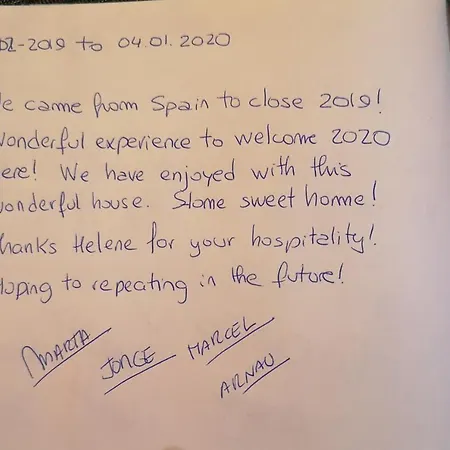 -2019 to 04.01.2020
e came from Spain to close 2019!
onderful experience to welcome 2020
ere! We have enjoyed with this
onderful house. Slome sweet home!
hanks Helene for your hospitality!
oping to repeating in the future!
MARTA
JORGE
MARCEL
ARNAU